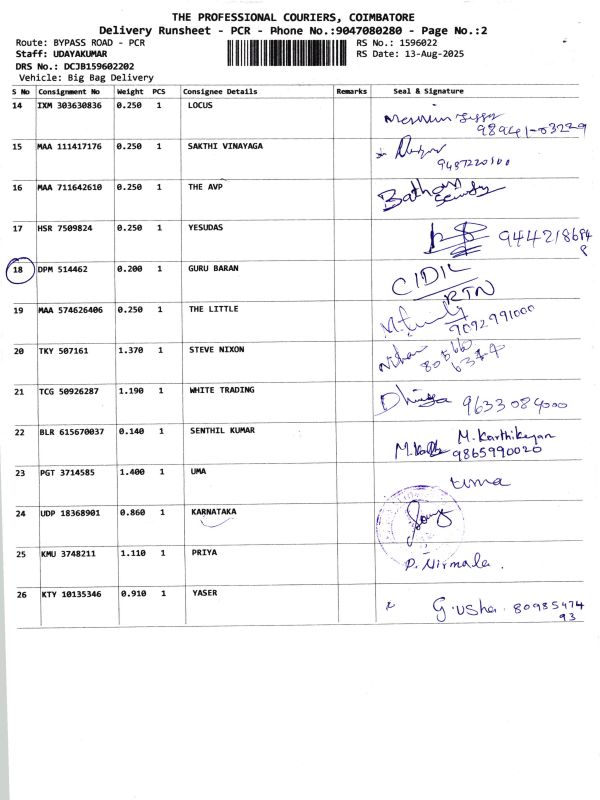 THE PROFESSIONAL COURIERS, COIMBATORE
Delivery Runsheet - PCR - Phone No.:9047080280 - Page No.:2
Route: BYPASS ROAD - PCR RS No.: 1596022
Staff: UDAYAKUMAR RS Date: 13-Aug-2025
DRS No.: DCJB159602202
Vehicle: Big Bag Delivery
S No Consignment No Weight PCS Consignee Details Remarks Seal & Signature
14 IXM 303630836 0.250 1 LOCUS
98941-03229
15 MAA 111417176 0.250 1 SAKTHI VINAYAGA
9487220500
16 MAA 711642610 0.250 1 THE AVP
17 HSR 7509824 0.250 1 YESUDAS
18 DPM 514462 0.200 1 GURU BARAN CIDIL
RTN
19 MAA 574626406 0.250 1 THE LITTLE
9092991000
20 TKY 507161 1.370 1 STEVE NIXON
21 TCG 50926287 1.190 1 WHITE TRADING
9633084000
22 BLR 615670037 0.140 1 SENTHIL KUMAR M. Karthikeyan
9865990020
23 PGT 3714585 1.400 1 UMA uma
24 UDP 18368901 0.860 1 KARNATAKA
25 KMU 3748211 1.110 1 PRIYA P. Nirmala.
26 KTY 10135346 0.910 1 YASER G. Usha. 80985474
93